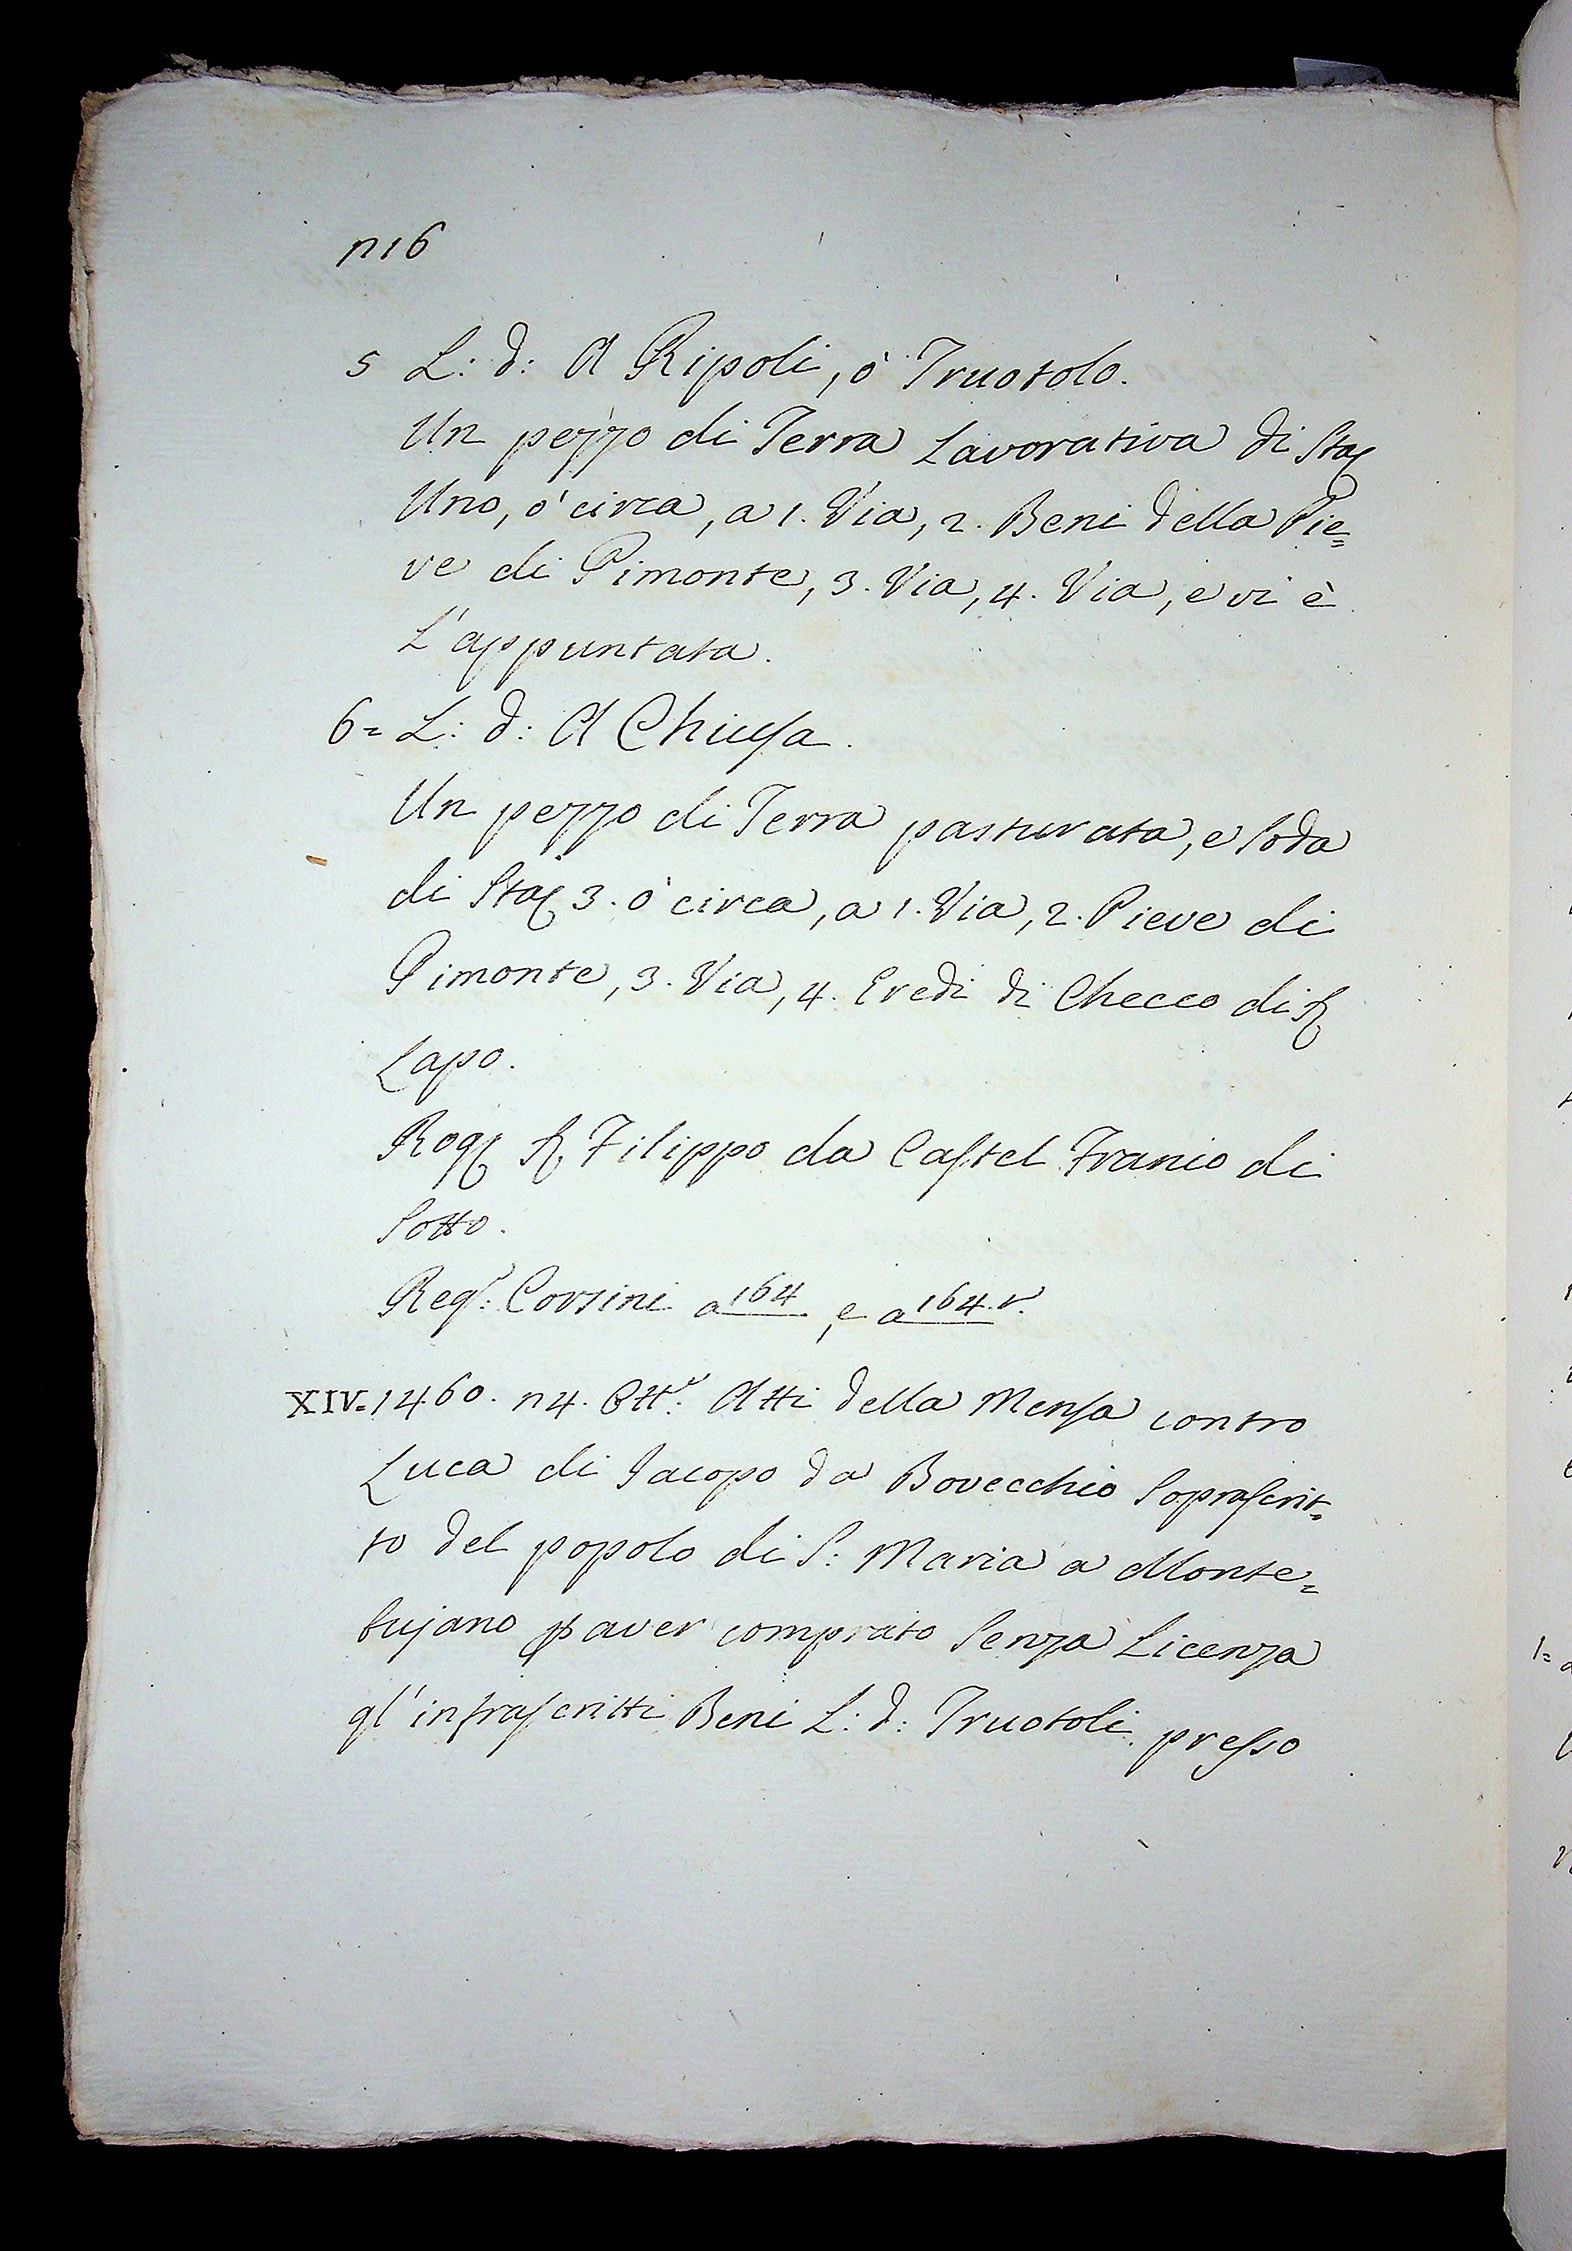 n 16
5 L: d: A Ripoli, ó Truotolo.
Un pezzo di Terra Lavorativa di Sta
Uno, ó circa, a 1. Via, 2. Beni della Pie=
ve di Pimonte, 3. Via, 4. Via, e vi è
L'appuntata.
6= L: d: A Chiusa.
Un pezzo di Terra pasturata, e soda
di Sta 3. ó circa, a 1. Via, 2. Pieve di
Pimonte, 3. Via, 4. Eredi di Checco di S
Lapo.
Rog S Filippo da Castel Franco di
Sotto.
Reg.º: Corsini a 164, e a 164.v.
XIV=1460. n 4. Ott.e: Atti della Mensa contro
Luca di Jacopo da Bovecchio soprascrit=
to del popolo di S: Maria a Monte=
bujano p aver comprato senza Licenza
gl'infrascritti Beni L: d: Truotoli presso